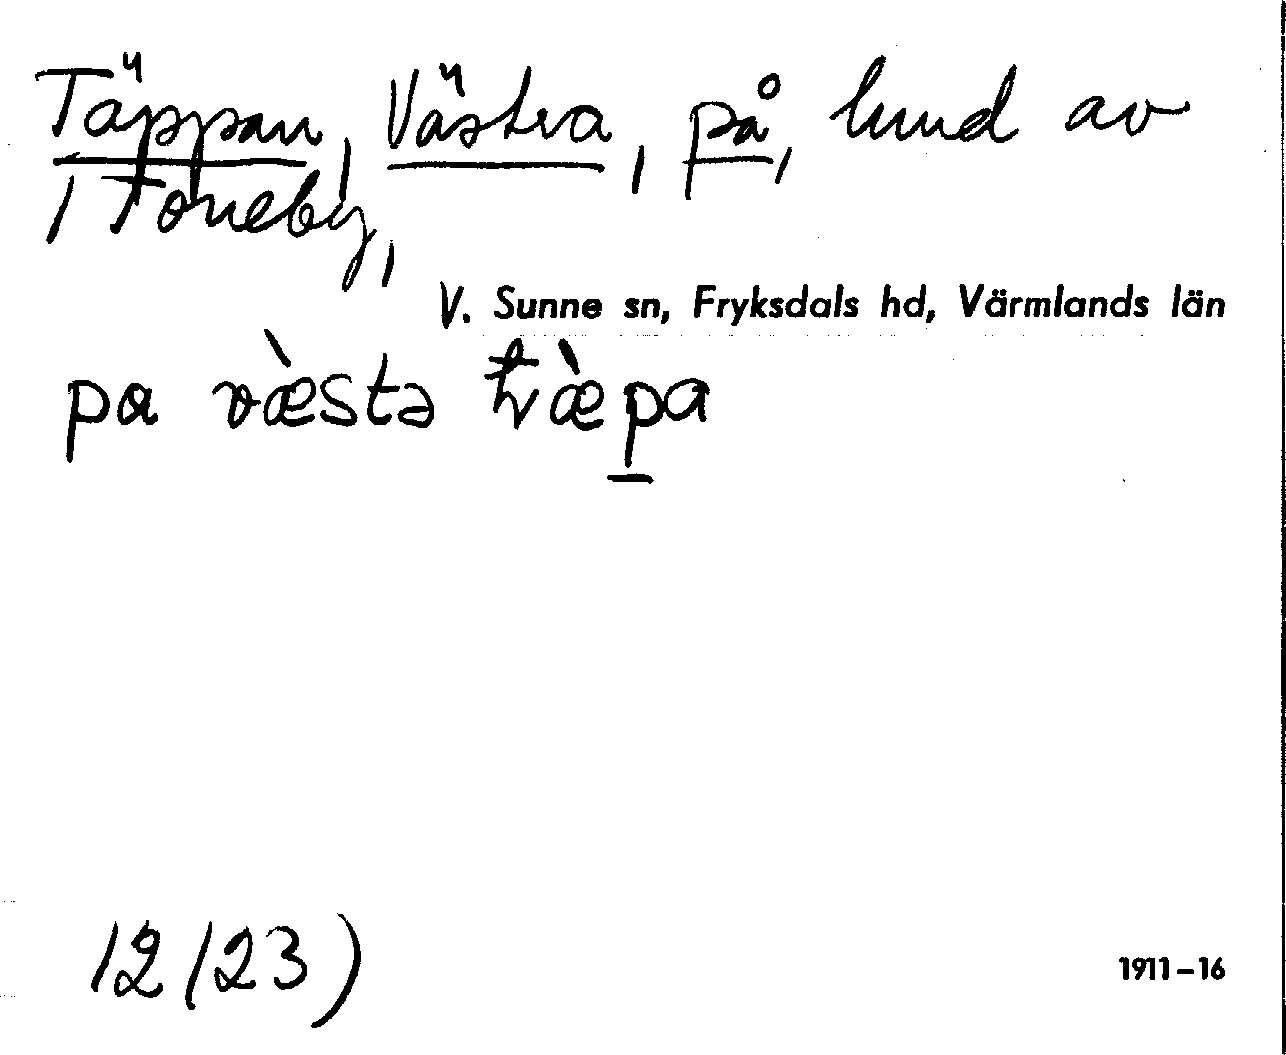 Täppan, Västra, på, lund av
/ Töneby,
V. Sunne sn, Fryksdals hd, Värmlands län
pa væ̀stə tæ̀pa
12 (23)
1911–16